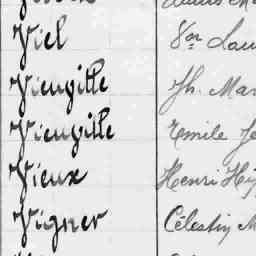 Viel Von Lau
Vieuville Jh. Mar
Vieuville Emile Je
Vieux Henri Hip
Vigner Célestin M